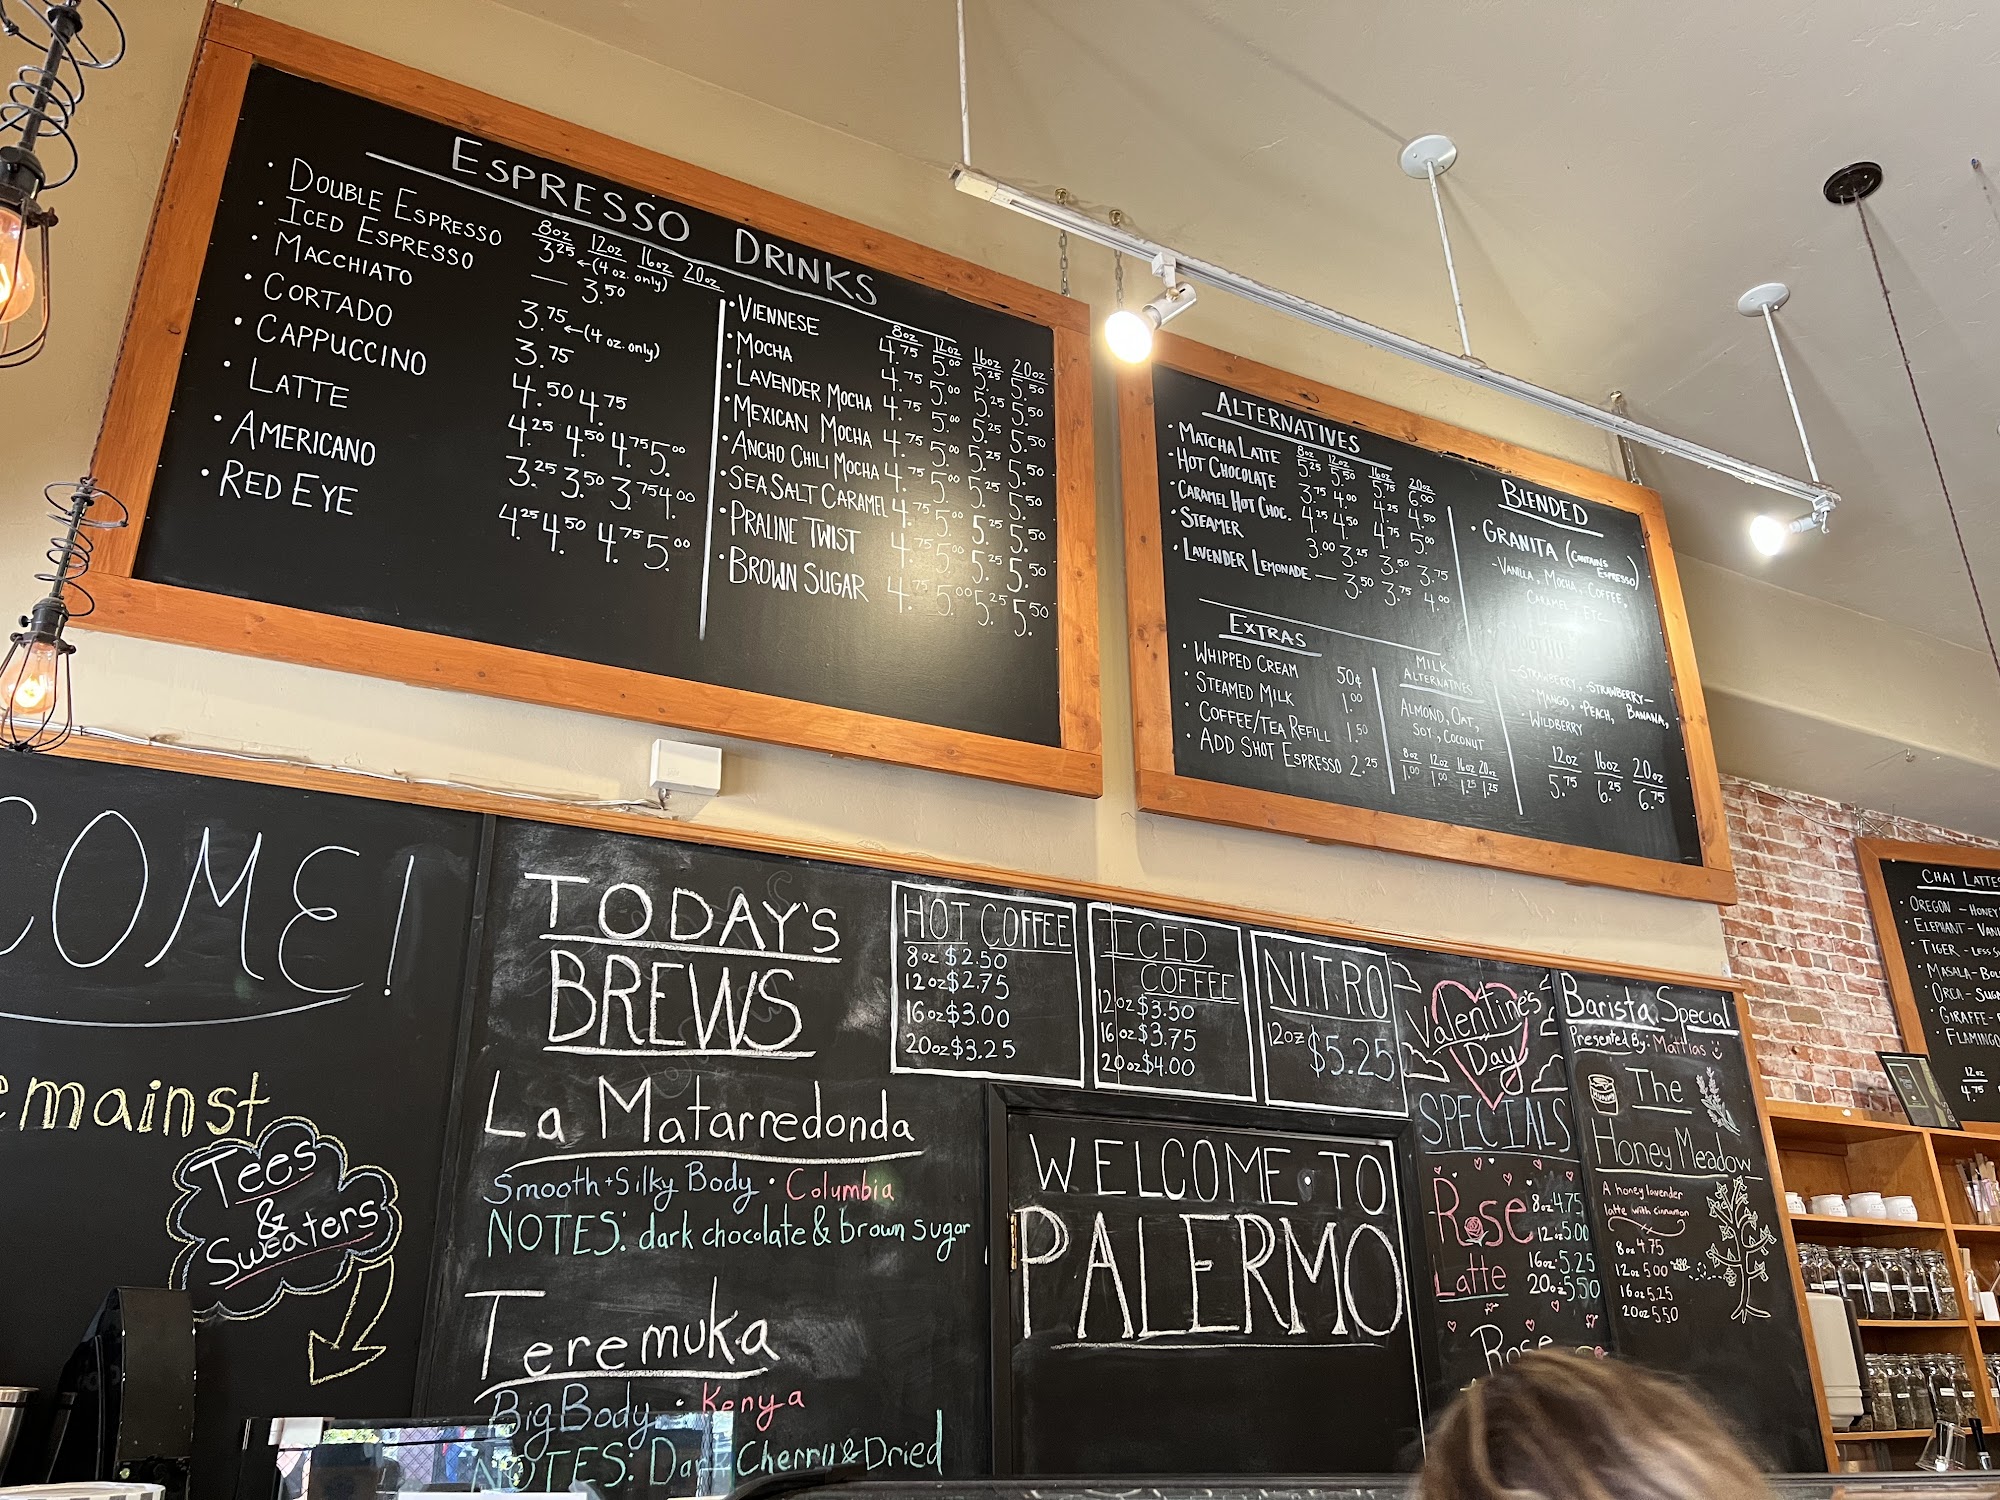 ESPRESSO DRINKS
8oz 12oz 16oz 20oz
· DOUBLE ESPRESSO 3.25 ←(4 oz. only)
· ICED ESPRESSO — 3.50
· MACCHIATO 3.75 ←(4 oz. only)
· CORTADO 3.75
· CAPPUCCINO 4.50 4.75
· LATTE 4.25 4.50 4.75 5.00
· AMERICANO 3.25 3.50 3.75 4.00
· RED EYE 4.25 4.50 4.75 5.00
8oz 12oz 16oz 20oz
· VIENNESE 4.75 5.00 5.25 5.50
· MOCHA 4.75 5.00 5.25 5.50
· LAVENDER MOCHA 4.75 5.00 5.25 5.50
· MEXICAN MOCHA 4.75 5.00 5.25 5.50
· ANCHO CHILI MOCHA 4.75 5.00 5.25 5.50
· SEA SALT CARAMEL 4.75 5.00 5.25 5.50
· PRALINE TWIST 4.75 5.00 5.25 5.50
· BROWN SUGAR 4.75 5.00 5.25 5.50
ALTERNATIVES
8oz 12oz 16oz 20oz
· MATCHA LATTE 5.25 5.50 5.75 6.00
· HOT CHOCOLATE 3.75 4.00 4.25 4.50
· CARAMEL HOT CHOC. 4.25 4.50 4.75 5.00
· STEAMER 3.00 3.25 3.50 3.75
· LAVENDER LEMONADE — 3.50 3.75 4.00
EXTRAS
· WHIPPED CREAM 50¢
· STEAMED MILK 1.00
· COFFEE/TEA REFILL 1.50
· ADD SHOT ESPRESSO 2.25
MILK
ALTERNATIVES
ALMOND, OAT,
SOY, COCONUT
8oz 12oz 16oz 20oz
1.00 1.00 1.25 1.25
BLENDED
· GRANITA (CONTAINS ESPRESSO)
-VANILLA, MOCHA, COFFEE,
CARAMEL ETC.
-STRAWBERRY, -STRAWBERRY-
· MANGO, · PEACH, BANANA,
· WILDBERRY
12oz 16oz 20oz
5.75 6.25 6.75
CHAI LATTES
· OREGON - HONEY
· ELEPHANT - 
· TIGER - LESS
· MASALA - 
· ORCA - 
· GIRAFFE -
· FLAMINGO
12oz
4.75
OME!
emainst
Tees
&
Sweaters
TODAY'S
BREWS
La Matarredonda
Smooth + Silky Body · Columbia
NOTES: dark chocolate & brown sugar
Teremuka
Big Body · Kenya
NOTES: Dark Cherry & Dried
HOT COFFEE
8oz $2.50
12oz $2.75
16oz $3.00
20oz $3.25
ICED
COFFEE
12oz $3.50
16oz $3.75
20oz $4.00
NITRO
12oz $5.25
WELCOME · TO
PALERMO
Valentine's
Day
SPECIALS
Rose
Latte
8oz 4.75
12oz 5.00
16oz 5.25
20oz 5.50
Rose
Barista Special
Presented By: Mattias
The
Honey Meadow
A honey lavender
latte with cinnamon
8oz 4.75
12oz 5.00
16oz 5.25
20oz 5.50